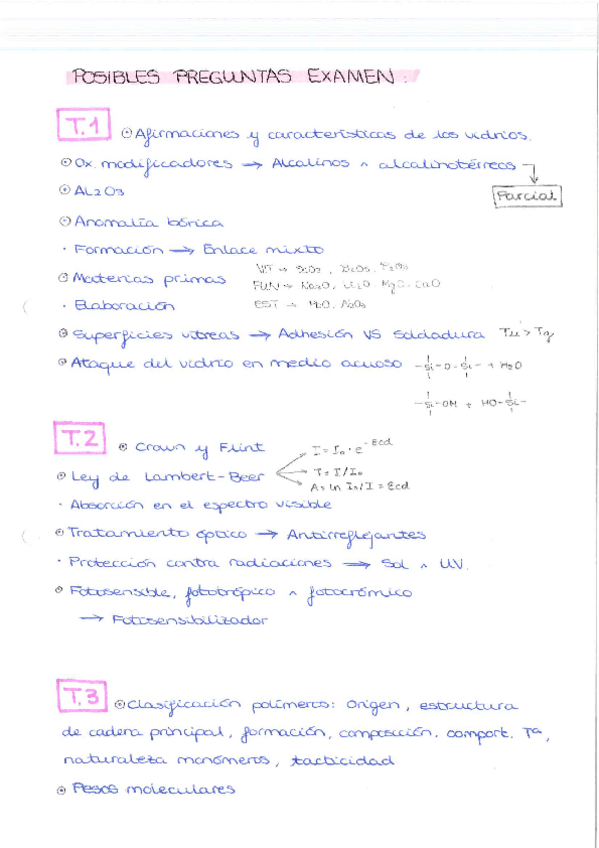 POSIBLES PREGUNTAS EXAMEN:
T.1
Afirmaciones y características de los vidrios.
Ox. modificadores → Alcalinos ^ alcalinotérreos
Parcial
AL2O3
Anomalía bórica
· Formación → Enlace mixto
Materias primas
VIT → SiO2, B2O3, P2O5
FUN → Na2O, Li2O, MgO, CaO
EST →
· Elaboración
Superficies vítreas → Adhesión VS Soldadura Tu > Tg
Ataque del vidrio en medio acuoso -Si-O-Si- + H2O
-Si-OH + HO-Si-
T.2
Crown y Flint
I = Io · e^-Ecd
Ley de Lambert-Beer
T = I/Io
A = ln Io/I = Ecd
· Absorción en el espectro visible
Tratamiento óptico → Antirreflejantes
· Protección contra radiaciones → Sol ^ UV.
Fotosensible, fototrópico ^ fotocrómico
→ Fotosensibilizador
T.3
Clasificación polímeros: Origen, estructura
de cadena principal, formación, composición, comport. Tª,
naturaleza monómeros, tacticidad
Pesos moleculares